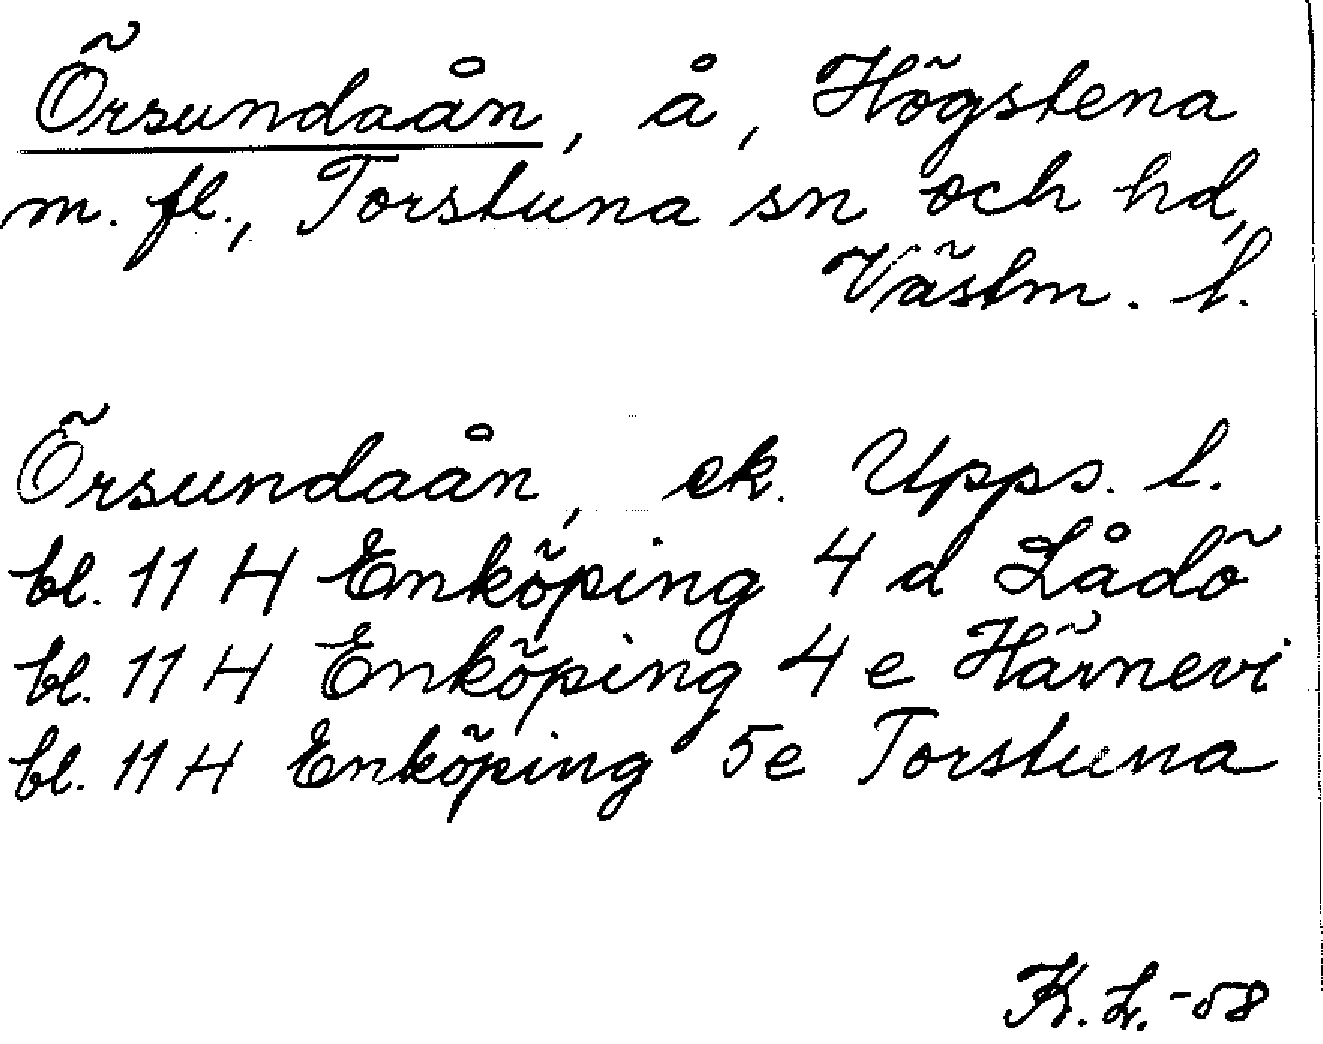 Örsundaån, å, Högstena
m. fl., Torstuna sn och hd,
Västm. l.
Örsundaån, ek. Upps. l.
bl. 11 H Enköping 4 d Lådö
bl. 11 H Enköping 4 e Härnevi
bl. 11 H Enköping 5e Torstuna
K. L. -58